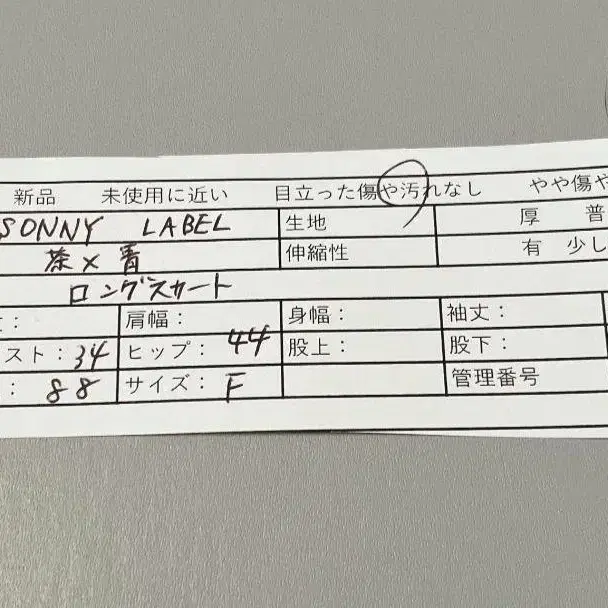 新品 未使用に近い 目立った傷や汚れなし やや傷や
SONNY LABEL 生地 厚 普
茶×青 伸縮性 有 少し
ロングスカート
: 肩幅: 身幅: 袖丈:
スト:34 ヒップ:44 股上: 股下:
:88 サイズ:F 管理番号